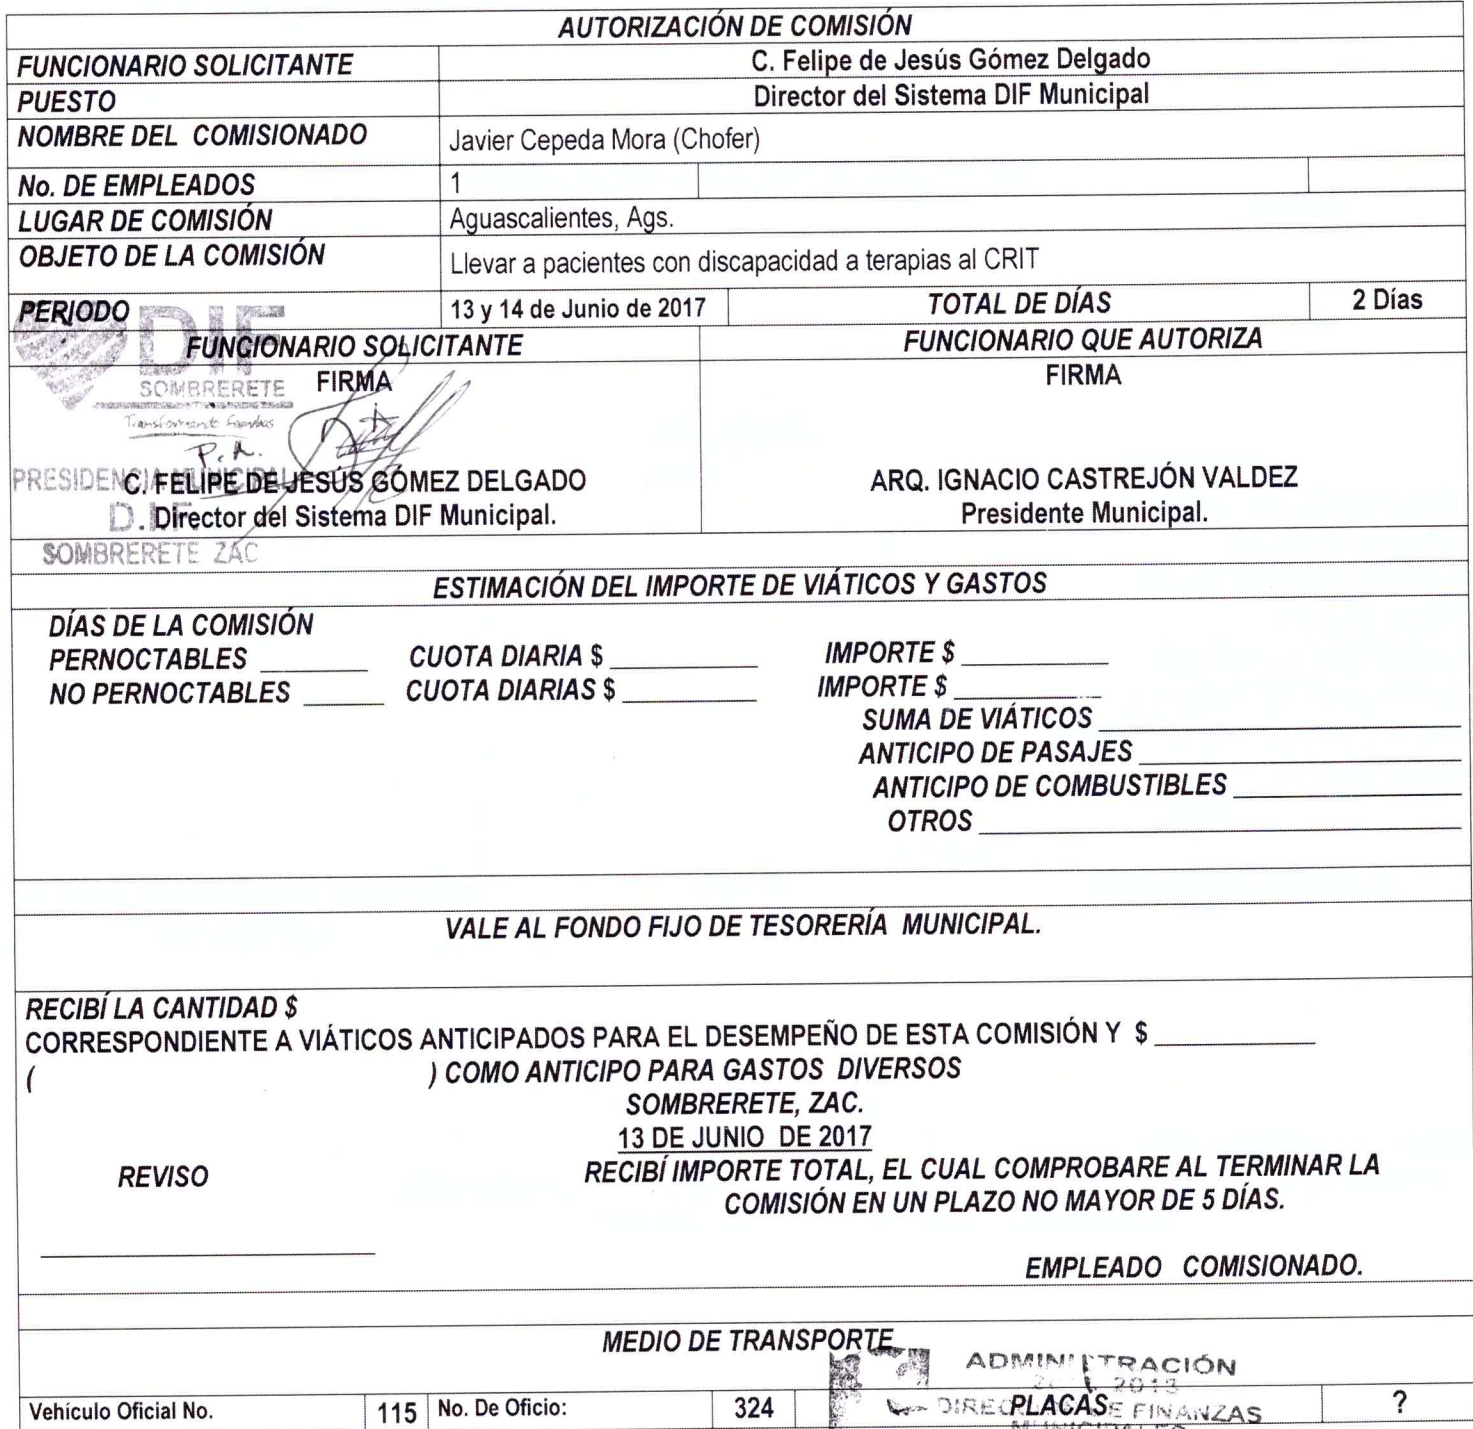 AUTORIZACIÓN DE COMISIÓN
FUNCIONARIO SOLICITANTE C. Felipe de Jesús Gómez Delgado
PUESTO Director del Sistema DIF Municipal
NOMBRE DEL COMISIONADO Javier Cepeda Mora (Chofer)
No. DE EMPLEADOS 1
LUGAR DE COMISIÓN Aguascalientes, Ags.
OBJETO DE LA COMISIÓN Llevar a pacientes con discapacidad a terapias al CRIT
PERIODO 13 y 14 de Junio de 2017 TOTAL DE DÍAS 2 Días
DIF
FUNCIONARIO SOLICITANTE FUNCIONARIO QUE AUTORIZA
FIRMA FIRMA
SOMBRERETE
Transformando
P.A.
PRESIDENCIA MUNICIPAL
C. FELIPE DE JESÚS GÓMEZ DELGADO ARQ. IGNACIO CASTREJÓN VALDEZ
D.I.F.
Director del Sistema DIF Municipal. Presidente Municipal.
SOMBRERETE ZAC
ESTIMACIÓN DEL IMPORTE DE VIÁTICOS Y GASTOS
DÍAS DE LA COMISIÓN
PERNOCTABLES ________ CUOTA DIARIA $ ___________ IMPORTE $ ___________
NO PERNOCTABLES ______ CUOTA DIARIAS $ __________ IMPORTE $ ___________
SUMA DE VIÁTICOS ___________________________
ANTICIPO DE PASAJES ________________________
ANTICIPO DE COMBUSTIBLES _________________
OTROS ____________________________________
VALE AL FONDO FIJO DE TESORERÍA MUNICIPAL.
RECIBÍ LA CANTIDAD $
CORRESPONDIENTE A VIÁTICOS ANTICIPADOS PARA EL DESEMPEÑO DE ESTA COMISIÓN Y $ ____________
( ) COMO ANTICIPO PARA GASTOS DIVERSOS
SOMBRERETE, ZAC.
13 DE JUNIO DE 2017
REVISO RECIBÍ IMPORTE TOTAL, EL CUAL COMPROBARE AL TERMINAR LA
COMISIÓN EN UN PLAZO NO MAYOR DE 5 DÍAS.
EMPLEADO COMISIONADO.
MEDIO DE TRANSPORTE
ADMINISTRACIÓN
Vehículo Oficial No. 115 No. De Oficio: 324 PLACAS ?
DE FINANZAS